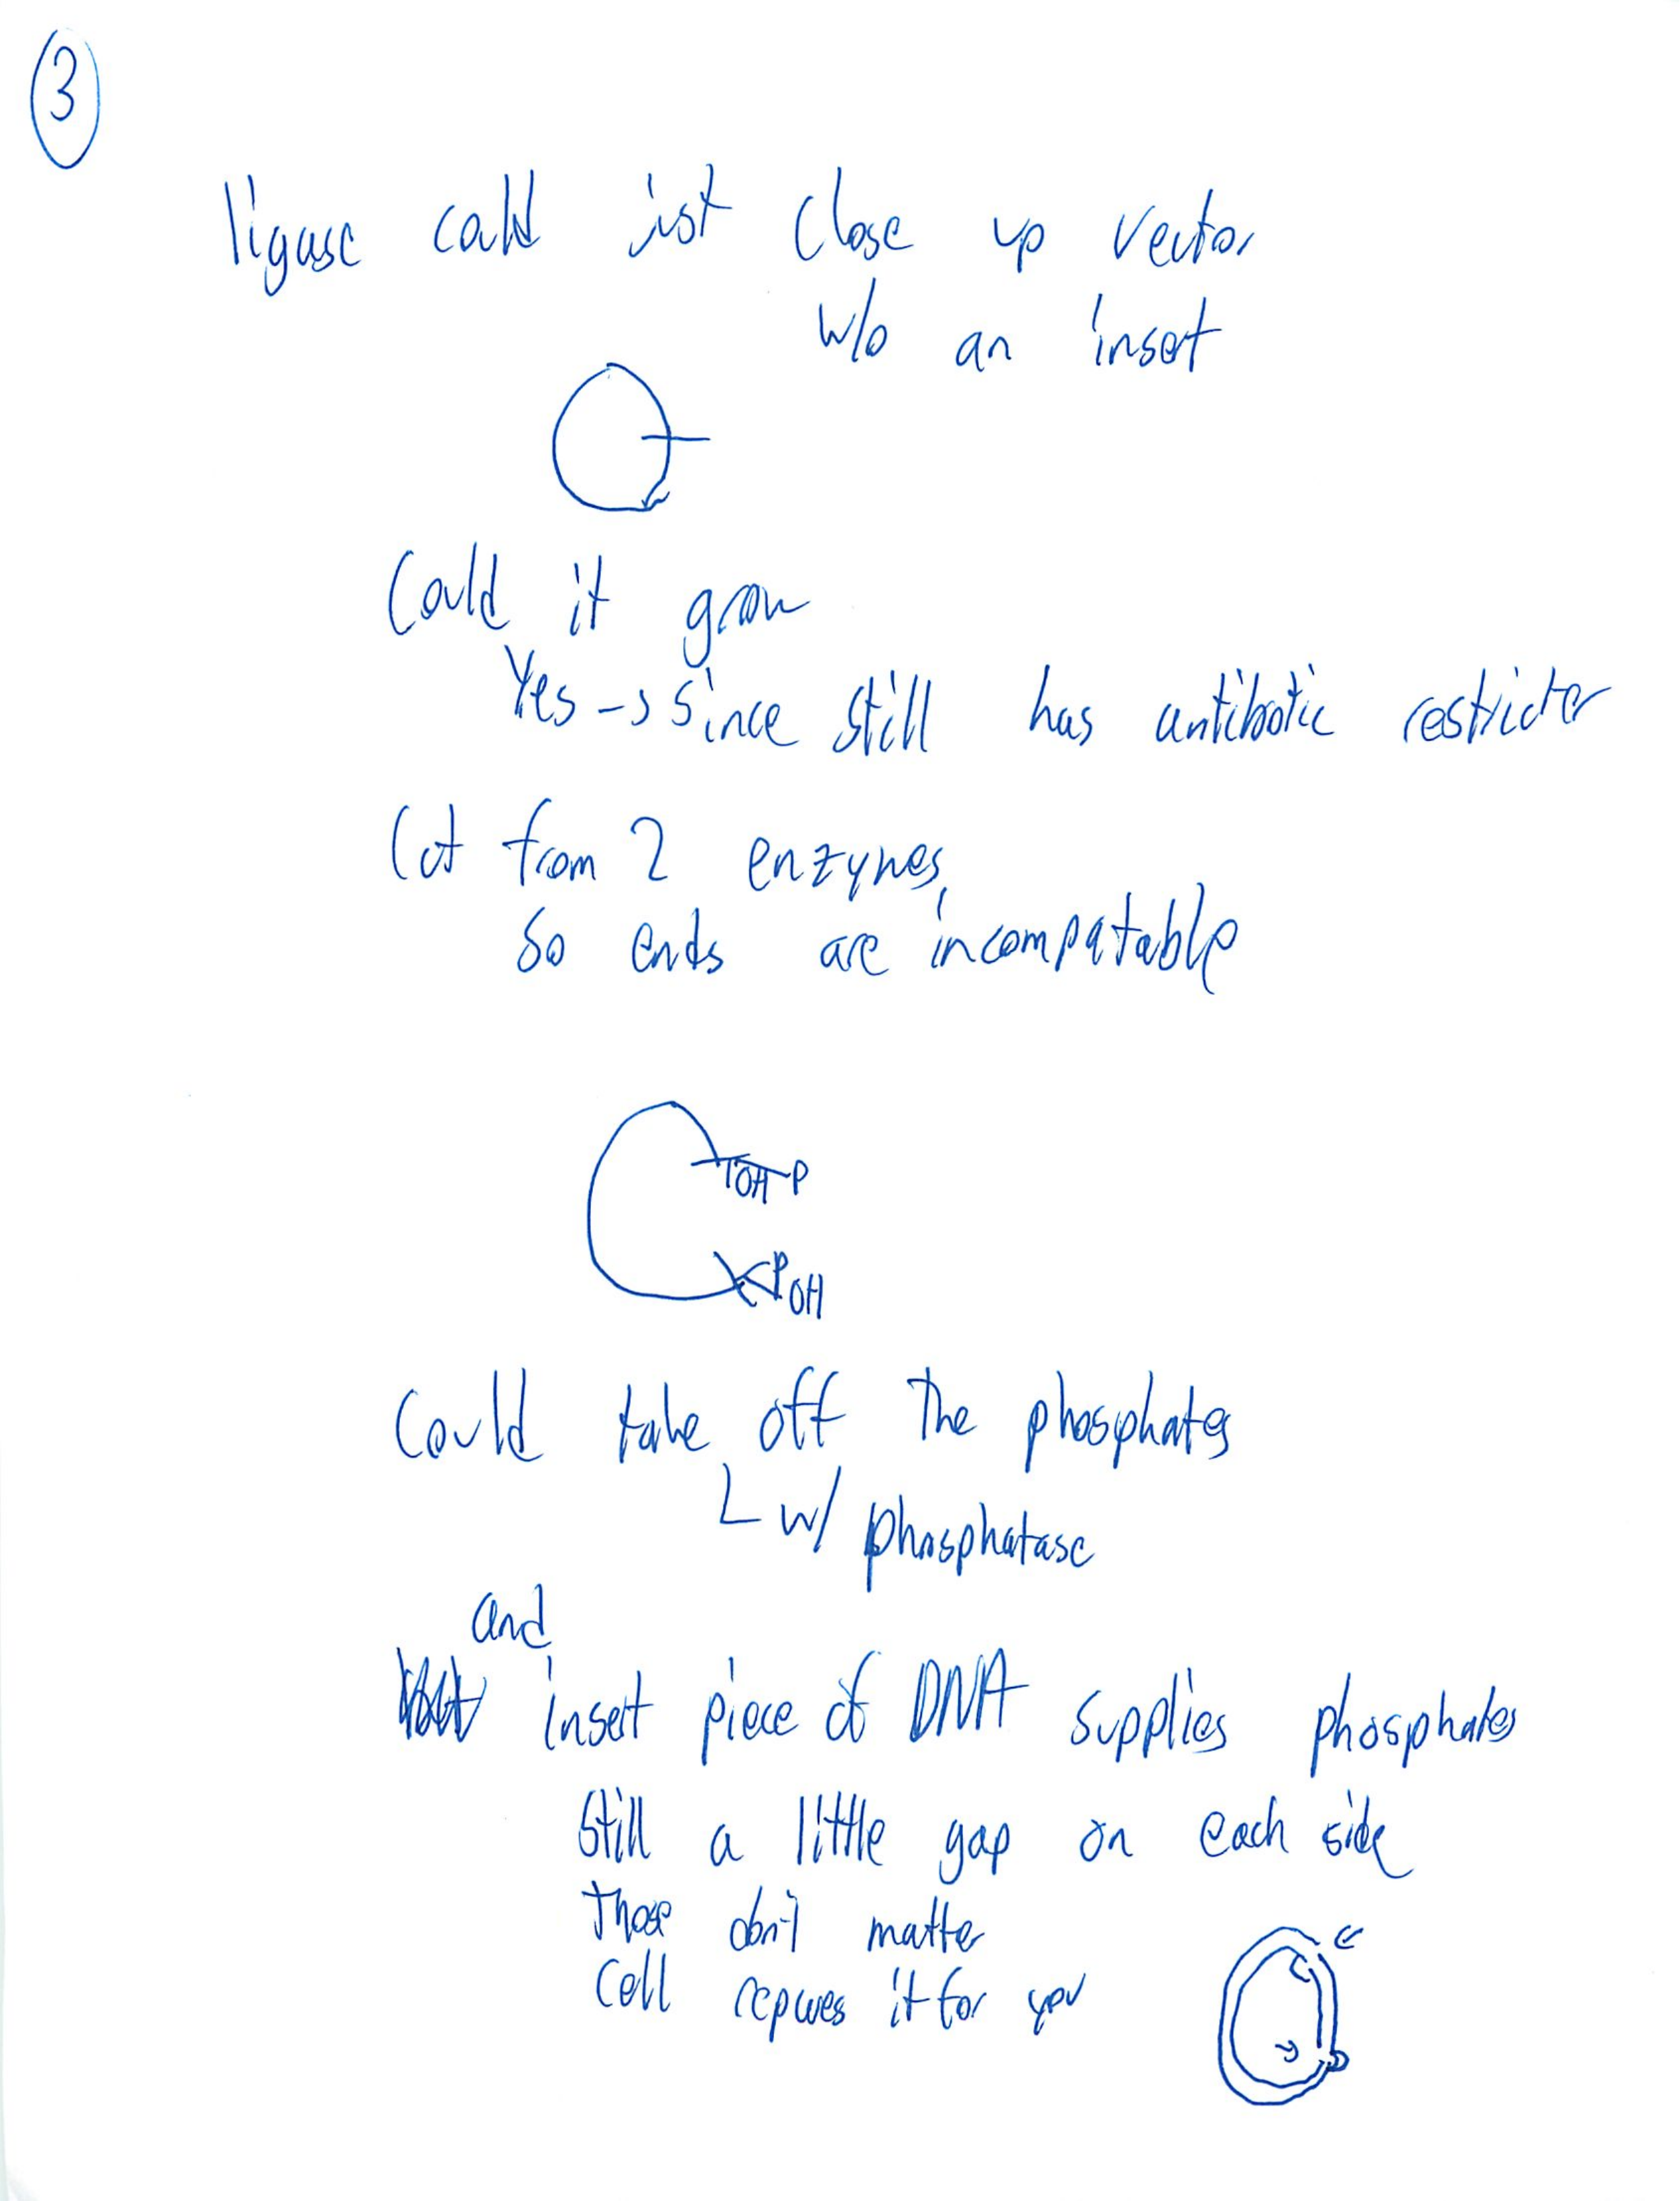 3
ligase could just close up vector
w/o an insert
Could it grow
Yes -> since still has antibotic restrictor
Cut from 2 enzymes
So ends are incompatable
OH P
P OH
Could take off the phosphates
L w/ phosphatase
and
insert piece of DNA supplies phosphates
Still a little gap on each side
Those don't matter
Cell repaires it for you